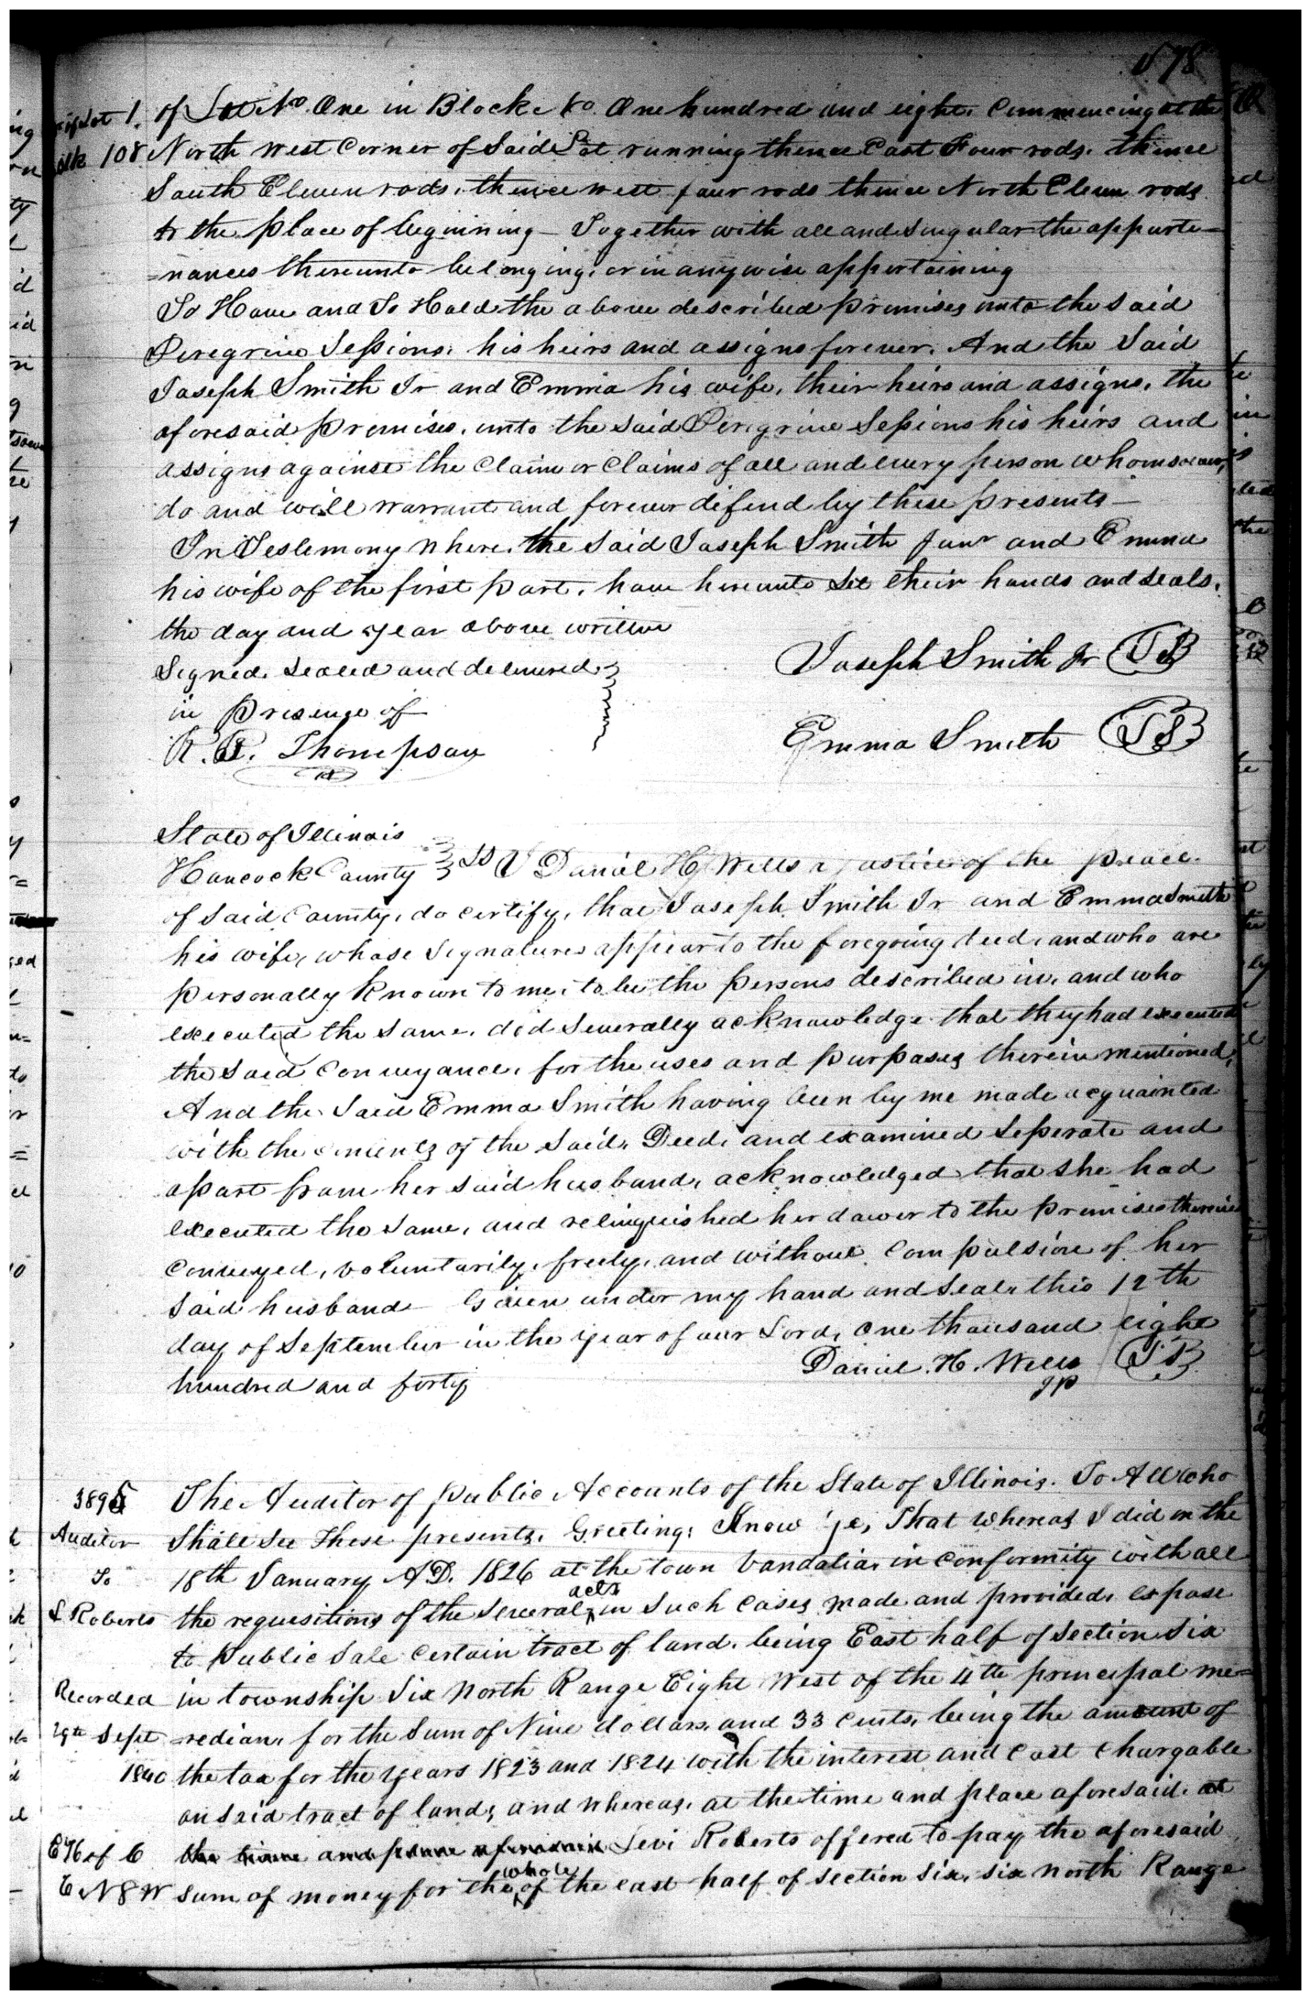 578
of Lot No. One in Block No One hundred and eight. Commencing at the
North west Corner of Said Lot running thence East Four rods. thence
South Eleven rods, thence west four rods thence North Eleven rods
to the place of beginning - Together with all and Singular the appurte=
=nances thereunto belonging, or in anywise appertaining
To Have and To Hold the above described premises unto the said
Peregrine Sessions, his heirs and assigns forever. And the Said
Joseph Smith Jr and Emma his wife, their heirs and assigns, the
aforesaid premises, unto the said Peregrine Sessions his heirs and
assigns against the Claim or Claims of all and every person whomsoever,
do and will warrant and forever defend by these presents -
In Testemony Where, the Said Joseph Smith Junr and Emma
his wife of the first part, have hereunto set their hands and seals.
the day and year above written
Signed, sealed and delivered
in presence of
R. B. Thompson
Joseph Smith Jr
Emma Smith
Lot 1.
Blk 108
State of Illinois
Hancock County ss I Daniel H. Wells a justice of the peace
of said County, do certify, that Joseph Smith Jr and Emma Smith
his wife, whose signatures appear to the foregoing deed, and who are
personally known to me, to be the persons described in, and who
executed the same, did severally acknowledge that they had executed
the said conveyance, for the uses and purposes therein mentioned,
And the Said Emma Smith having been by me made acquainted
with the contents of the said, Deed, and examined seperate and
apart from her said husband, acknowledged that she had
executed the same, and relinquished her dower to the premises therein
conveyed, voluntarily, freely, and without compulsion of her
said husband - Given under my hand and seal, this 12th
day of September in the year of our Lord, one thousand eight
hundred and forty
Daniel. H. Wells
JP
3895
Auditor
To
L Roberts
Recorded
29th Sept
1840
E 1/2 of 6
6 N 8 W
The Auditor of Public Accounts of the State of Illinois. To All who
Shall See These presents, Greeting; Know ye, That whereas I did on the
18th January AD. 1826 at the town Vandalia, in conformity with all
the requisitions of the several acts in such cases made and provided, expose
to Public Sale certain tract of land. being East half of section Six
in township Six North Range Eight West of the 4th principal me=
=redian, for the sum of Nine dollars, and 33 cents, being the amount of
the tax for the years 1823 and 1824 with the interest and cost chargable
on said tract of land, and whereas, at the time and place aforesaid. at
the time and place aforesaid Levi Roberts offered to pay the aforesaid
sum of money for the whole of the east half of section six, six north Range